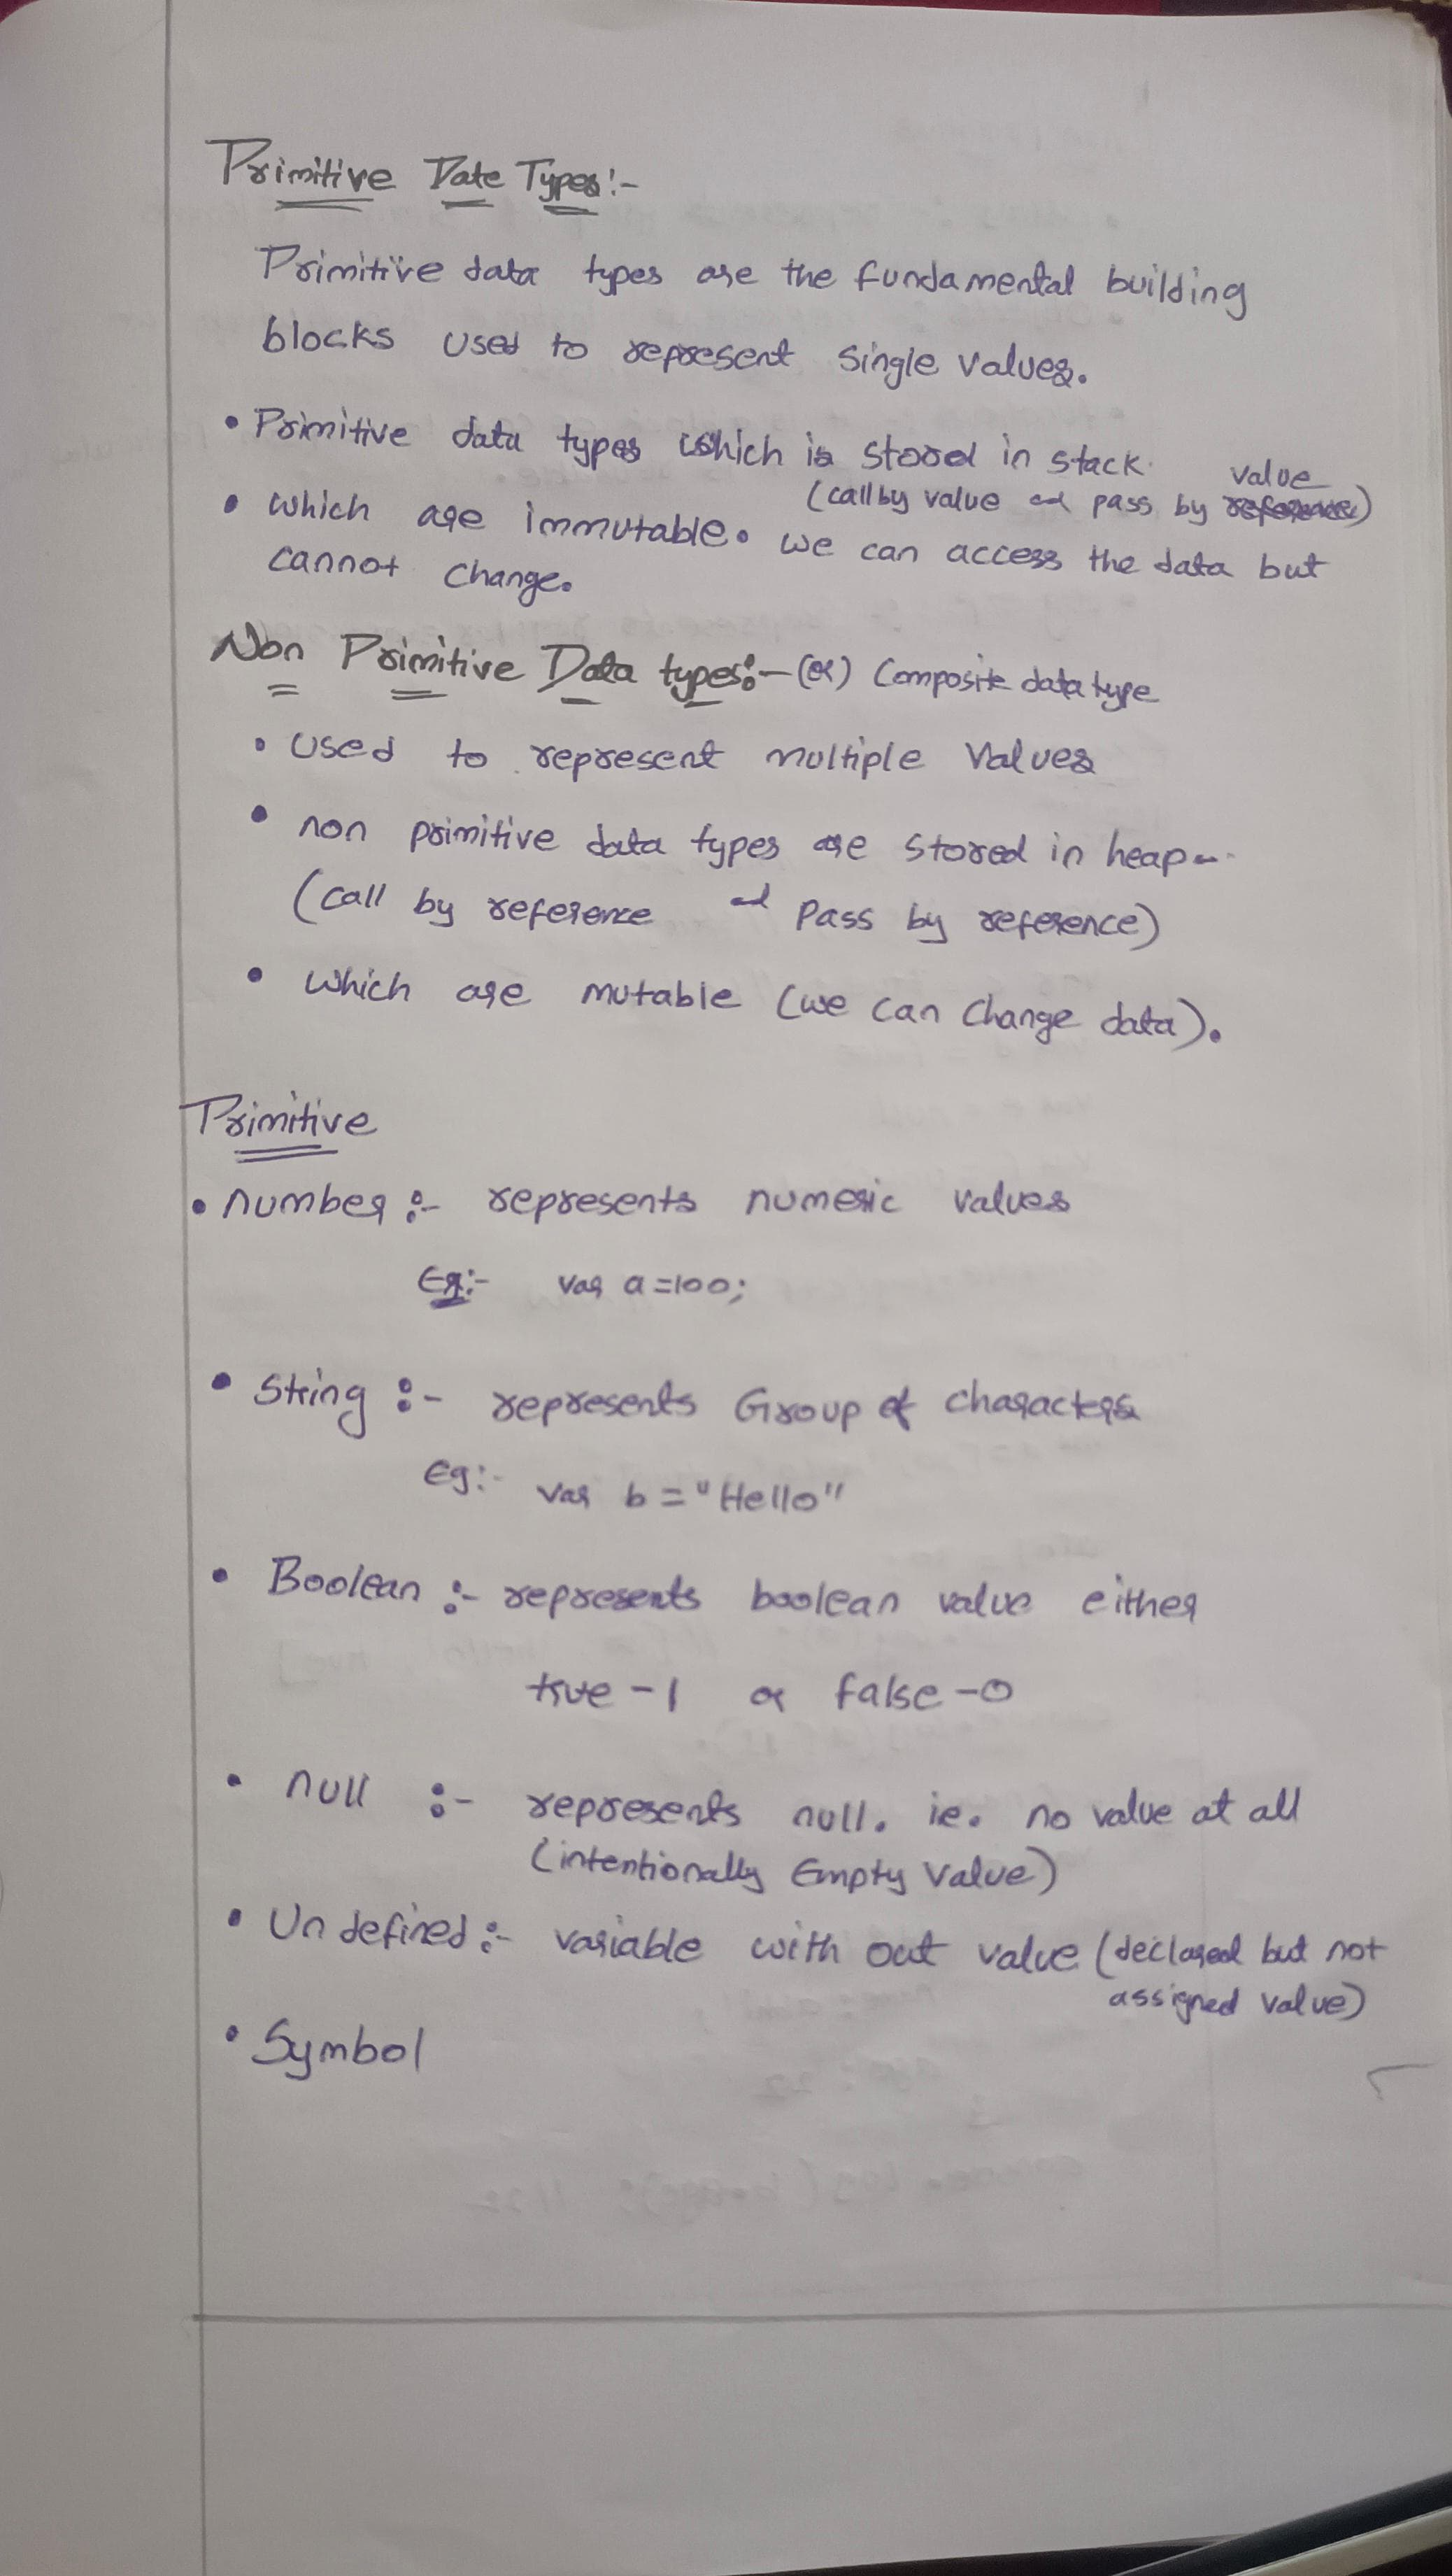 Primitive Date Types:-
Primitive data types are the fundamental building
blocks used to represent single values.
• Primitive data types which is stored in stack.
(call by value and pass by value reference)
• which are immutable. we can access the data but
cannot change.
Non Primitive Data types:- (or) Composite data type
• used to represent multiple values
• non primitive data types are stored in heap
(call by reference and pass by reference)
• which are mutable (we can change data).
Primitive
• number :- represents numeric values
Eg:- var a=100;
• String :- represents Group of characters
Eg:- var b = "Hello"
• Boolean :- represents boolean value either
true -1 or false -0
• null :- represents null. ie. no value at all
(intentionally Empty value)
• Un defined :- variable with out value (declared but not
assigned value)
• Symbol